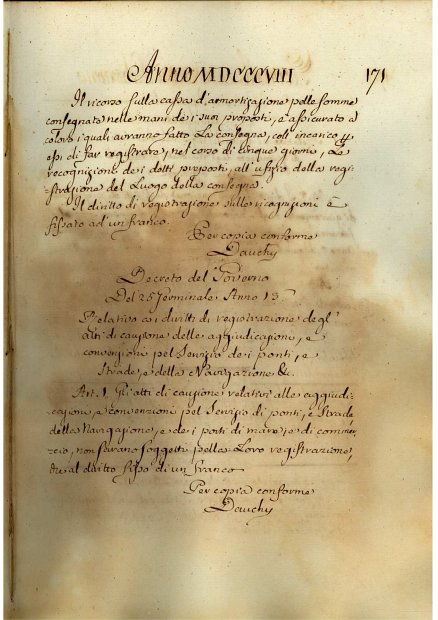 ANNO MDCCCVIII. 171
Il ricorso sulla cassa d'amortizazione pelle somme
consegnate nelle mani de i suoi preposti, è assicurato a
coloro i quali avranno fatto La consegna, coll'incarico
essi di far registrare, nel corso di cinque giorni, Le
recognizione de i detti preposti, all'ufizio della regi-
strazione del Luogo della consegna.
Il diritto di registrazione sulle ricognizioni è
fissato ad un franco.
Per copia conforme
Dauchy
Decreto del Governo
Del 25 Germinale Anno 13.
Relativo ai diritti di registrazione degl'
atti di cauzione delle aggiudicazioni, e
convenzioni pel Servizio de i ponti, e
Strade, e della Navigazione &c.
Art. 1. Gli atti di cauzione relativi alle aggiudi-
cazioni, e convenzioni pel Servizio di ponti, e Strade,
della Navigazione, e de i porti di mare, e di commer-
cio, non saranno soggetti pella Loro registrazione,
che al diritto fisso di un franco
Per copia conforme
Dauchy